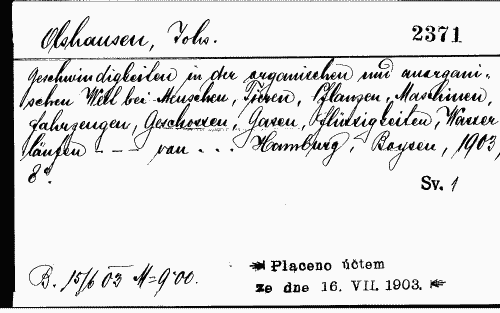 Olshausen, Johs.
2371
Geschwindigkeiten in der organischen und anorgani-
schen Welt bei Menschen, Tieren, Pflanzen, Maschinen,
Fahrzeugen, Geschossen, Gasen, Flüssigkeiten, Wasser
läufen - - - von ... Hamburg, Boysen, 1903,
8°.
Sv. 1
B. 15/6 03 M=9·00.
Placeno účtem
ze dne 16. VII. 1903.